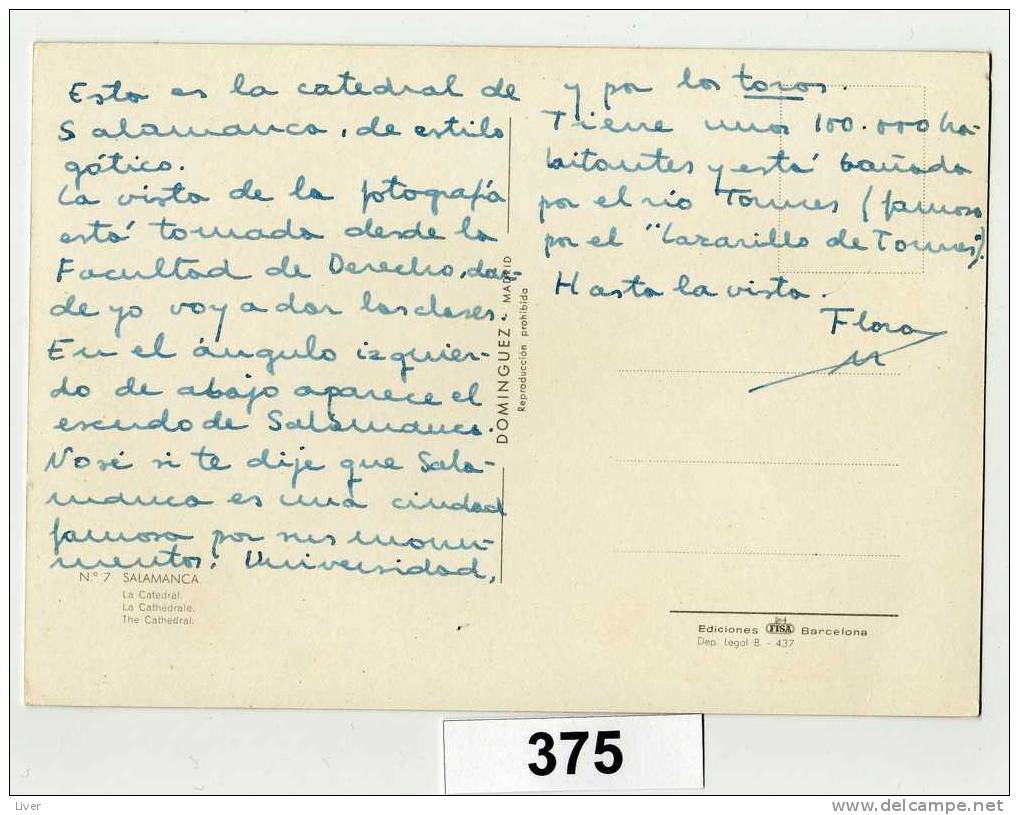 Esta es la catedral de
Salamanca, de estilo
gótico.
La vista de la fotografía
está tomada desde la
Facultad de Derecho, don-
de yo voy a dar las clases.
En el ángulo izquier-
do de abajo aparece el
escudo de Salamanca.
No sé si te dije que Sala-
manca es una ciudad
famosa por sus monu-
mentos: Universidad,
y por los toros.
Tiene unos 100.000 ha-
bitantes y está bañada
por el río Tormes (famoso
por el "Lazarillo de Tormes").
Hasta la vista.
Flora
DOMINGUEZ - MADRID
Reproducción prohibida
N.º 7 SALAMANCA
La Catedral.
La Cathédrale.
The Cathedral.
Ediciones FISA Barcelona
Dep. Legal B. - 437
375
Liver
http://www.delcampe.net